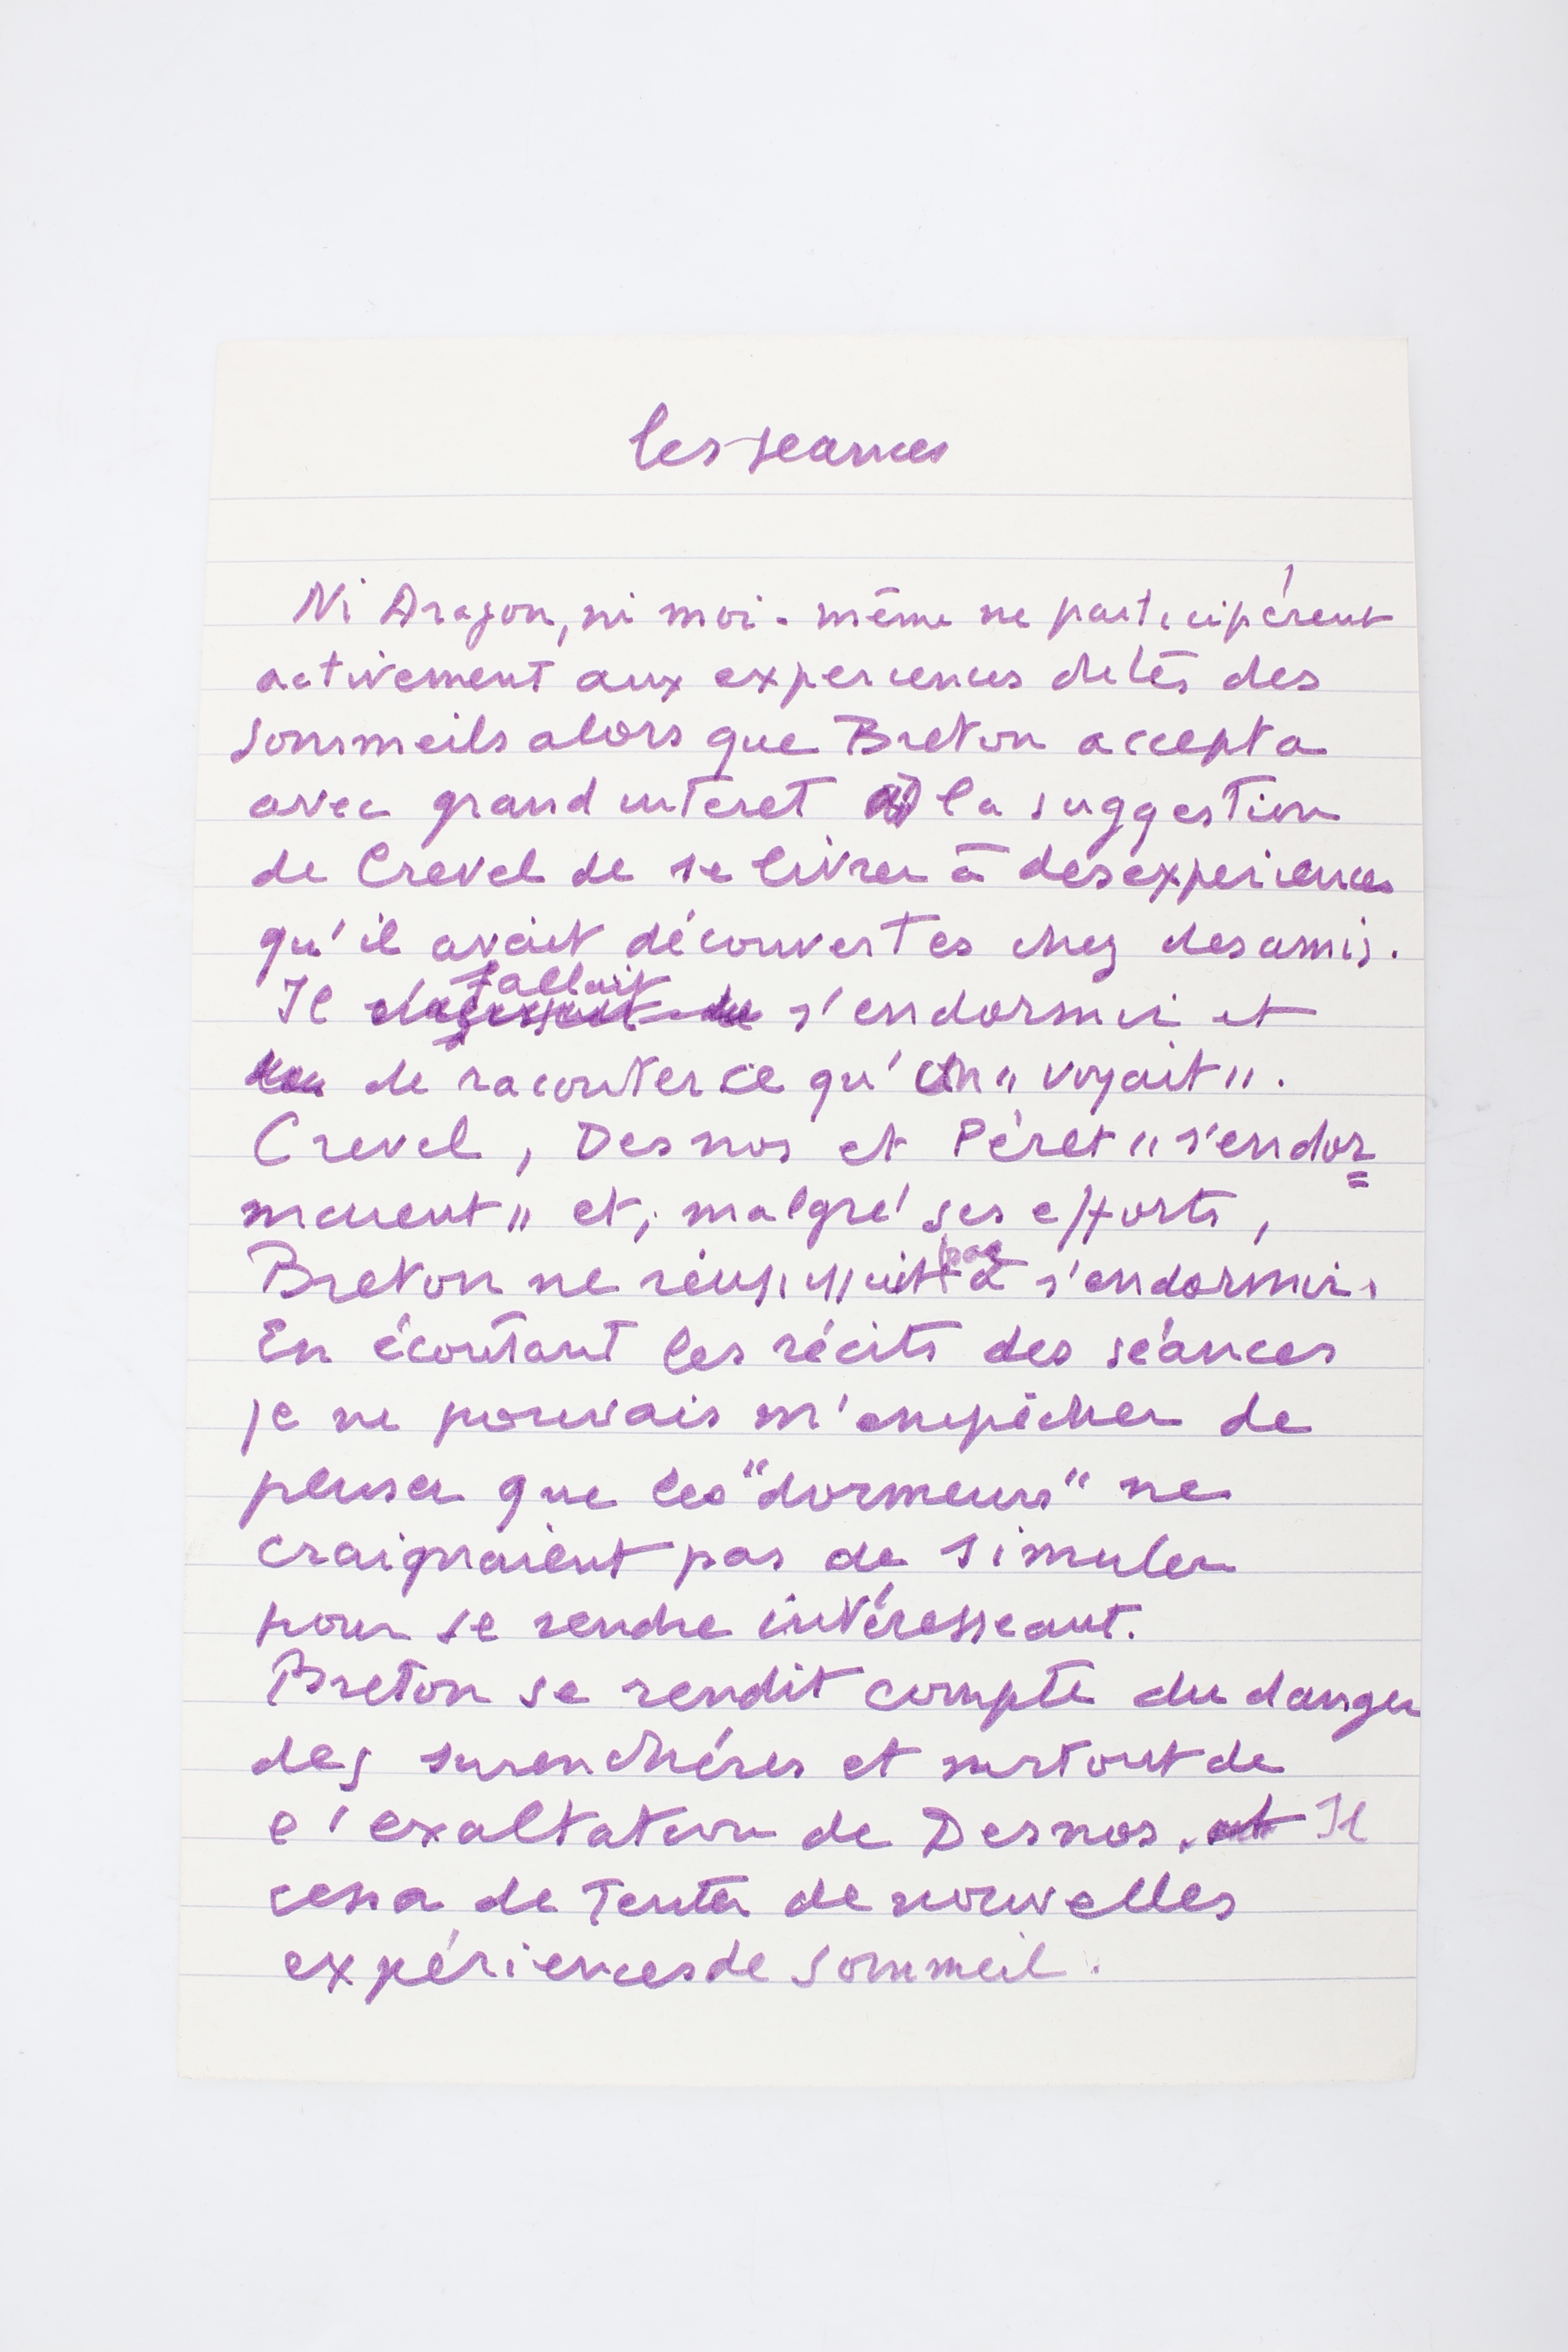 les seances
Ni Aragon, ni moi-même ne participérent
activement aux experiences dites des
sommeils alors que Breton accepta
avec grand interet la suggestion
de Crevel de se livrer à des experiences
qu'il avait découvertes chez des amis.
fallait
Il s'agissait de s'endormir et
de raconter ce qu'on "voyait".
Crevel, Desnos et Péret "s'endor=
maient" et, malgré ses efforts,
pas
Breton ne réussissait à s'endormir.
En écoutant les récits des séances
je ne pouvais m'empêcher de
penser que les "dormeurs" ne
craignaient pas de simuler
pour se rendre intéresseant.
Breton se rendit compte du danger
des surenchéres et surtout de
l'exaltation de Desnos. et Il
cessa de tenter de nouvelles
expériences de sommeil.